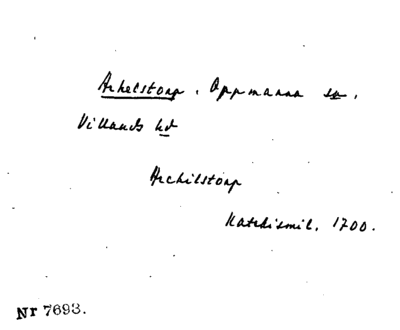 Arkelstorp, Oppmanna sn,
Villands hd
Archilstorp
Katekismil. 1700.
Nr 7693.